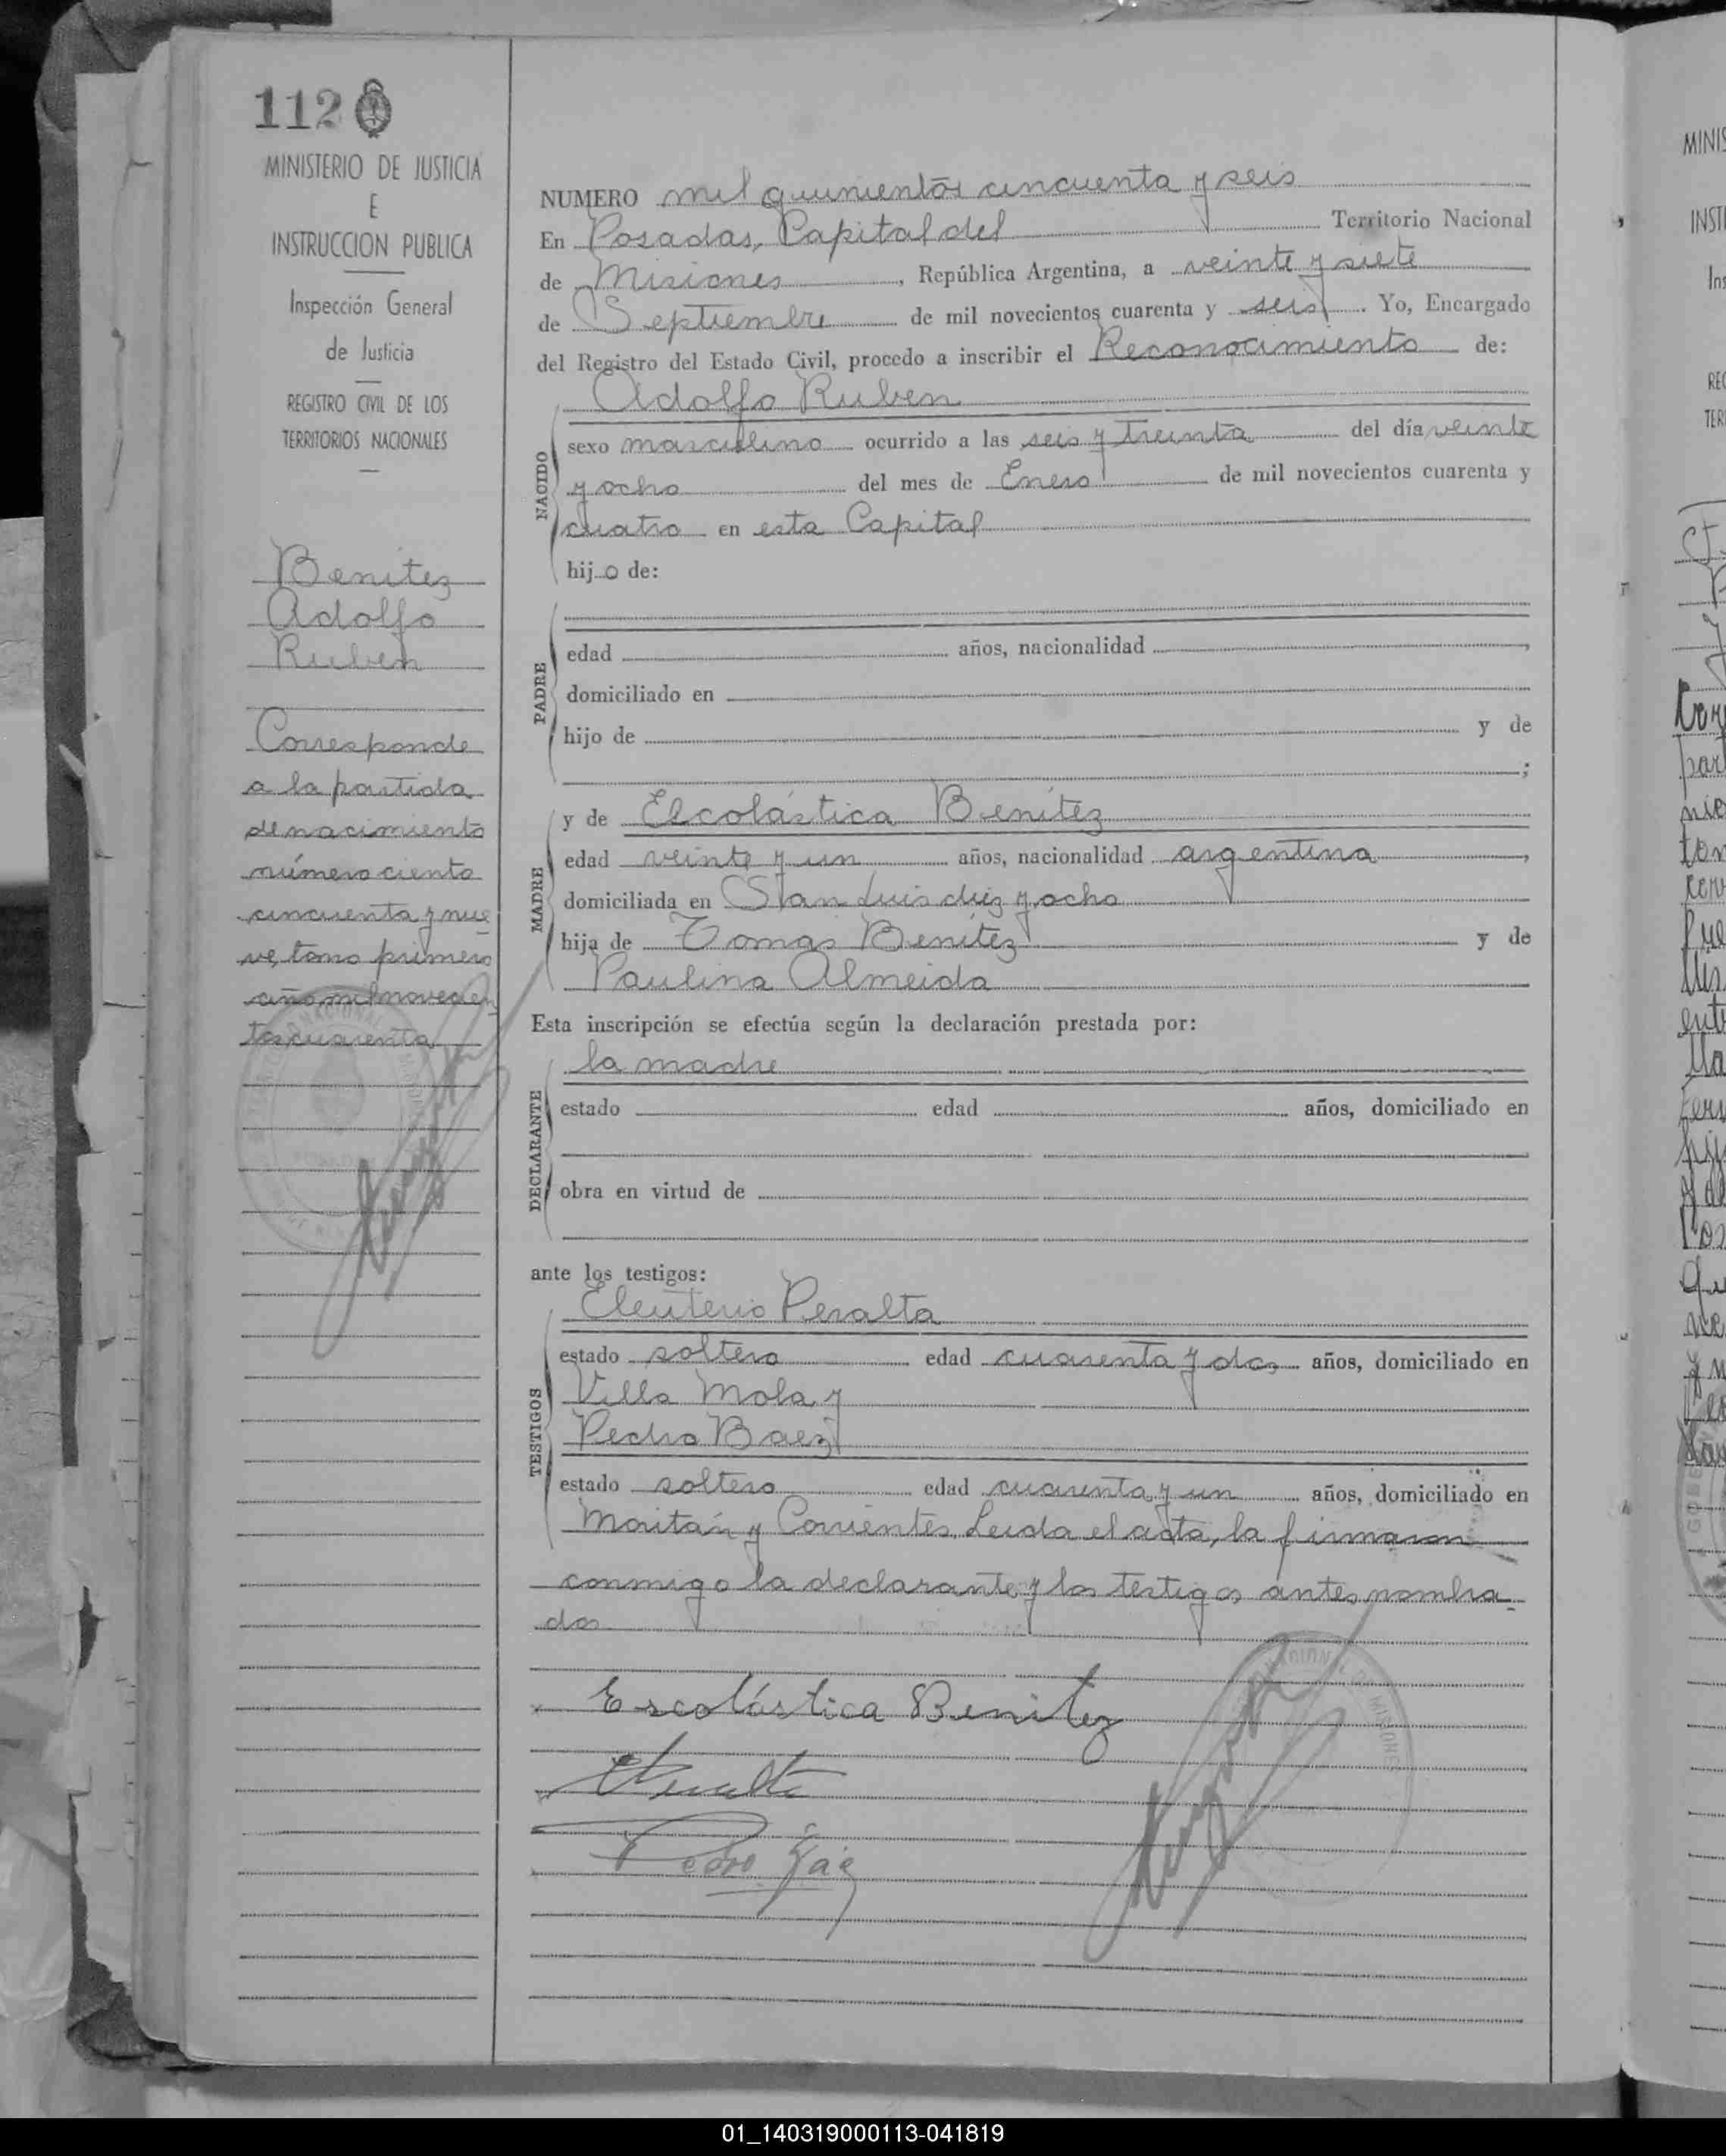 112
MINISTERIO DE JUSTICIA
E
INSTRUCCION PUBLICA
Inspección General
de Justicia
REGISTRO CIVIL DE LOS
TERRITORIOS NACIONALES
Benítez
Adolfo
Ruben
Corresponde
a la partida
de nacimiento
número ciento
cincuenta y nue
ve, tomo primero
año mil novecien
tos cuarenta
NUMERO mil quinientos cincuenta y seis
En Posadas, Capital del Territorio Nacional
de Misiones, República Argentina, a veinte y siete
de Septiembre de mil novecientos cuarenta y seis. Yo, Encargado
del Registro del Estado Civil, procedo a inscribir el Reconocimiento de:
NACIDO
Adolfo Ruben
sexo masculino ocurrido a las seis y treinta del día veinte
y ocho del mes de Enero de mil novecientos cuarenta y
cuatro en esta Capital
hijo de:
PADRE
edad años, nacionalidad ,
domiciliado en
hijo de y de
;
MADRE
y de Escolástica Benítez
edad veinte y un años, nacionalidad argentina,
domiciliada en San Luis diez y ocho
hija de Tomas Benítez y de
Paulina Almeida
Esta inscripción se efectúa según la declaración prestada por:
DECLARANTE
la madre
estado edad años, domiciliado en
obra en virtud de
ante los testigos:
TESTIGOS
Eleuterio Peralta
estado soltero edad cuarenta y dos años, domiciliado en
Villa Mola y
Pedro Baez
estado soltero edad cuarenta y un años, domiciliado en
Moritán y Corrientes. Leida el acta, la firmaron
conmigo la declarante y los testigos antes nombra-
dos.
Escolástica Benitez
EPeralta
Pedro Báez
01_140319000113-041819